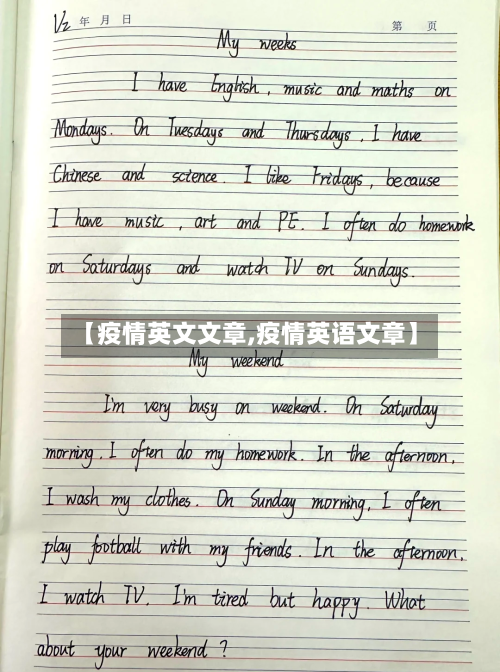 1/2 年 月 日
第 页
My weeks
I have English, music and maths on
Mondays. On Tuesdays and Thursdays, I have
Chinese and science. I like Fridays, because
I have music, art and PE. I often do homework
on Saturdays and watch TV on Sundays.
【疫情英文文章,疫情英语文章】
My weekend
I'm very busy on weekend. On Saturday
morning, I often do my homework. In the afternoon,
I wash my clothes. On Sunday morning, I often
play football with my friends. In the afternoon,
I watch TV. I'm tired but happy. What
about your weekend?